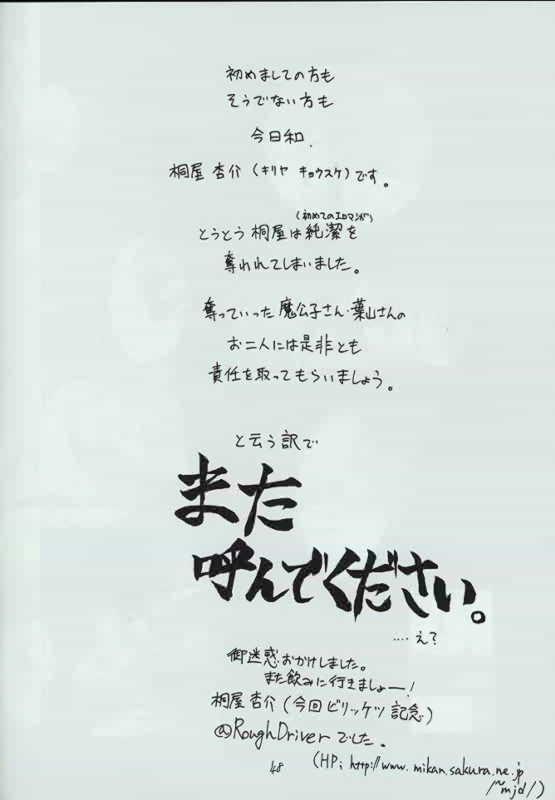 初めましての方も
そうでない方も
今日和.
桐屋 杏介 (キリヤ キョウスケ) です。
(初めてのエロマンガ)
とうとう 桐屋は純潔を
奪われてしまいました。
奪っていった 魔公子さん・葉山さんの
お二人には是非とも
責任を取ってもらいましょう。
と云う訳で
また
呼んでください。
....え?
御迷惑おかけしました。
また飲みに行きましょー!
桐屋 杏介 (今回ビリッケツ 記念)
@RoughDriver でした。
48
(HP; http://www.mikan.sakura.ne.jp
/~mjd/)